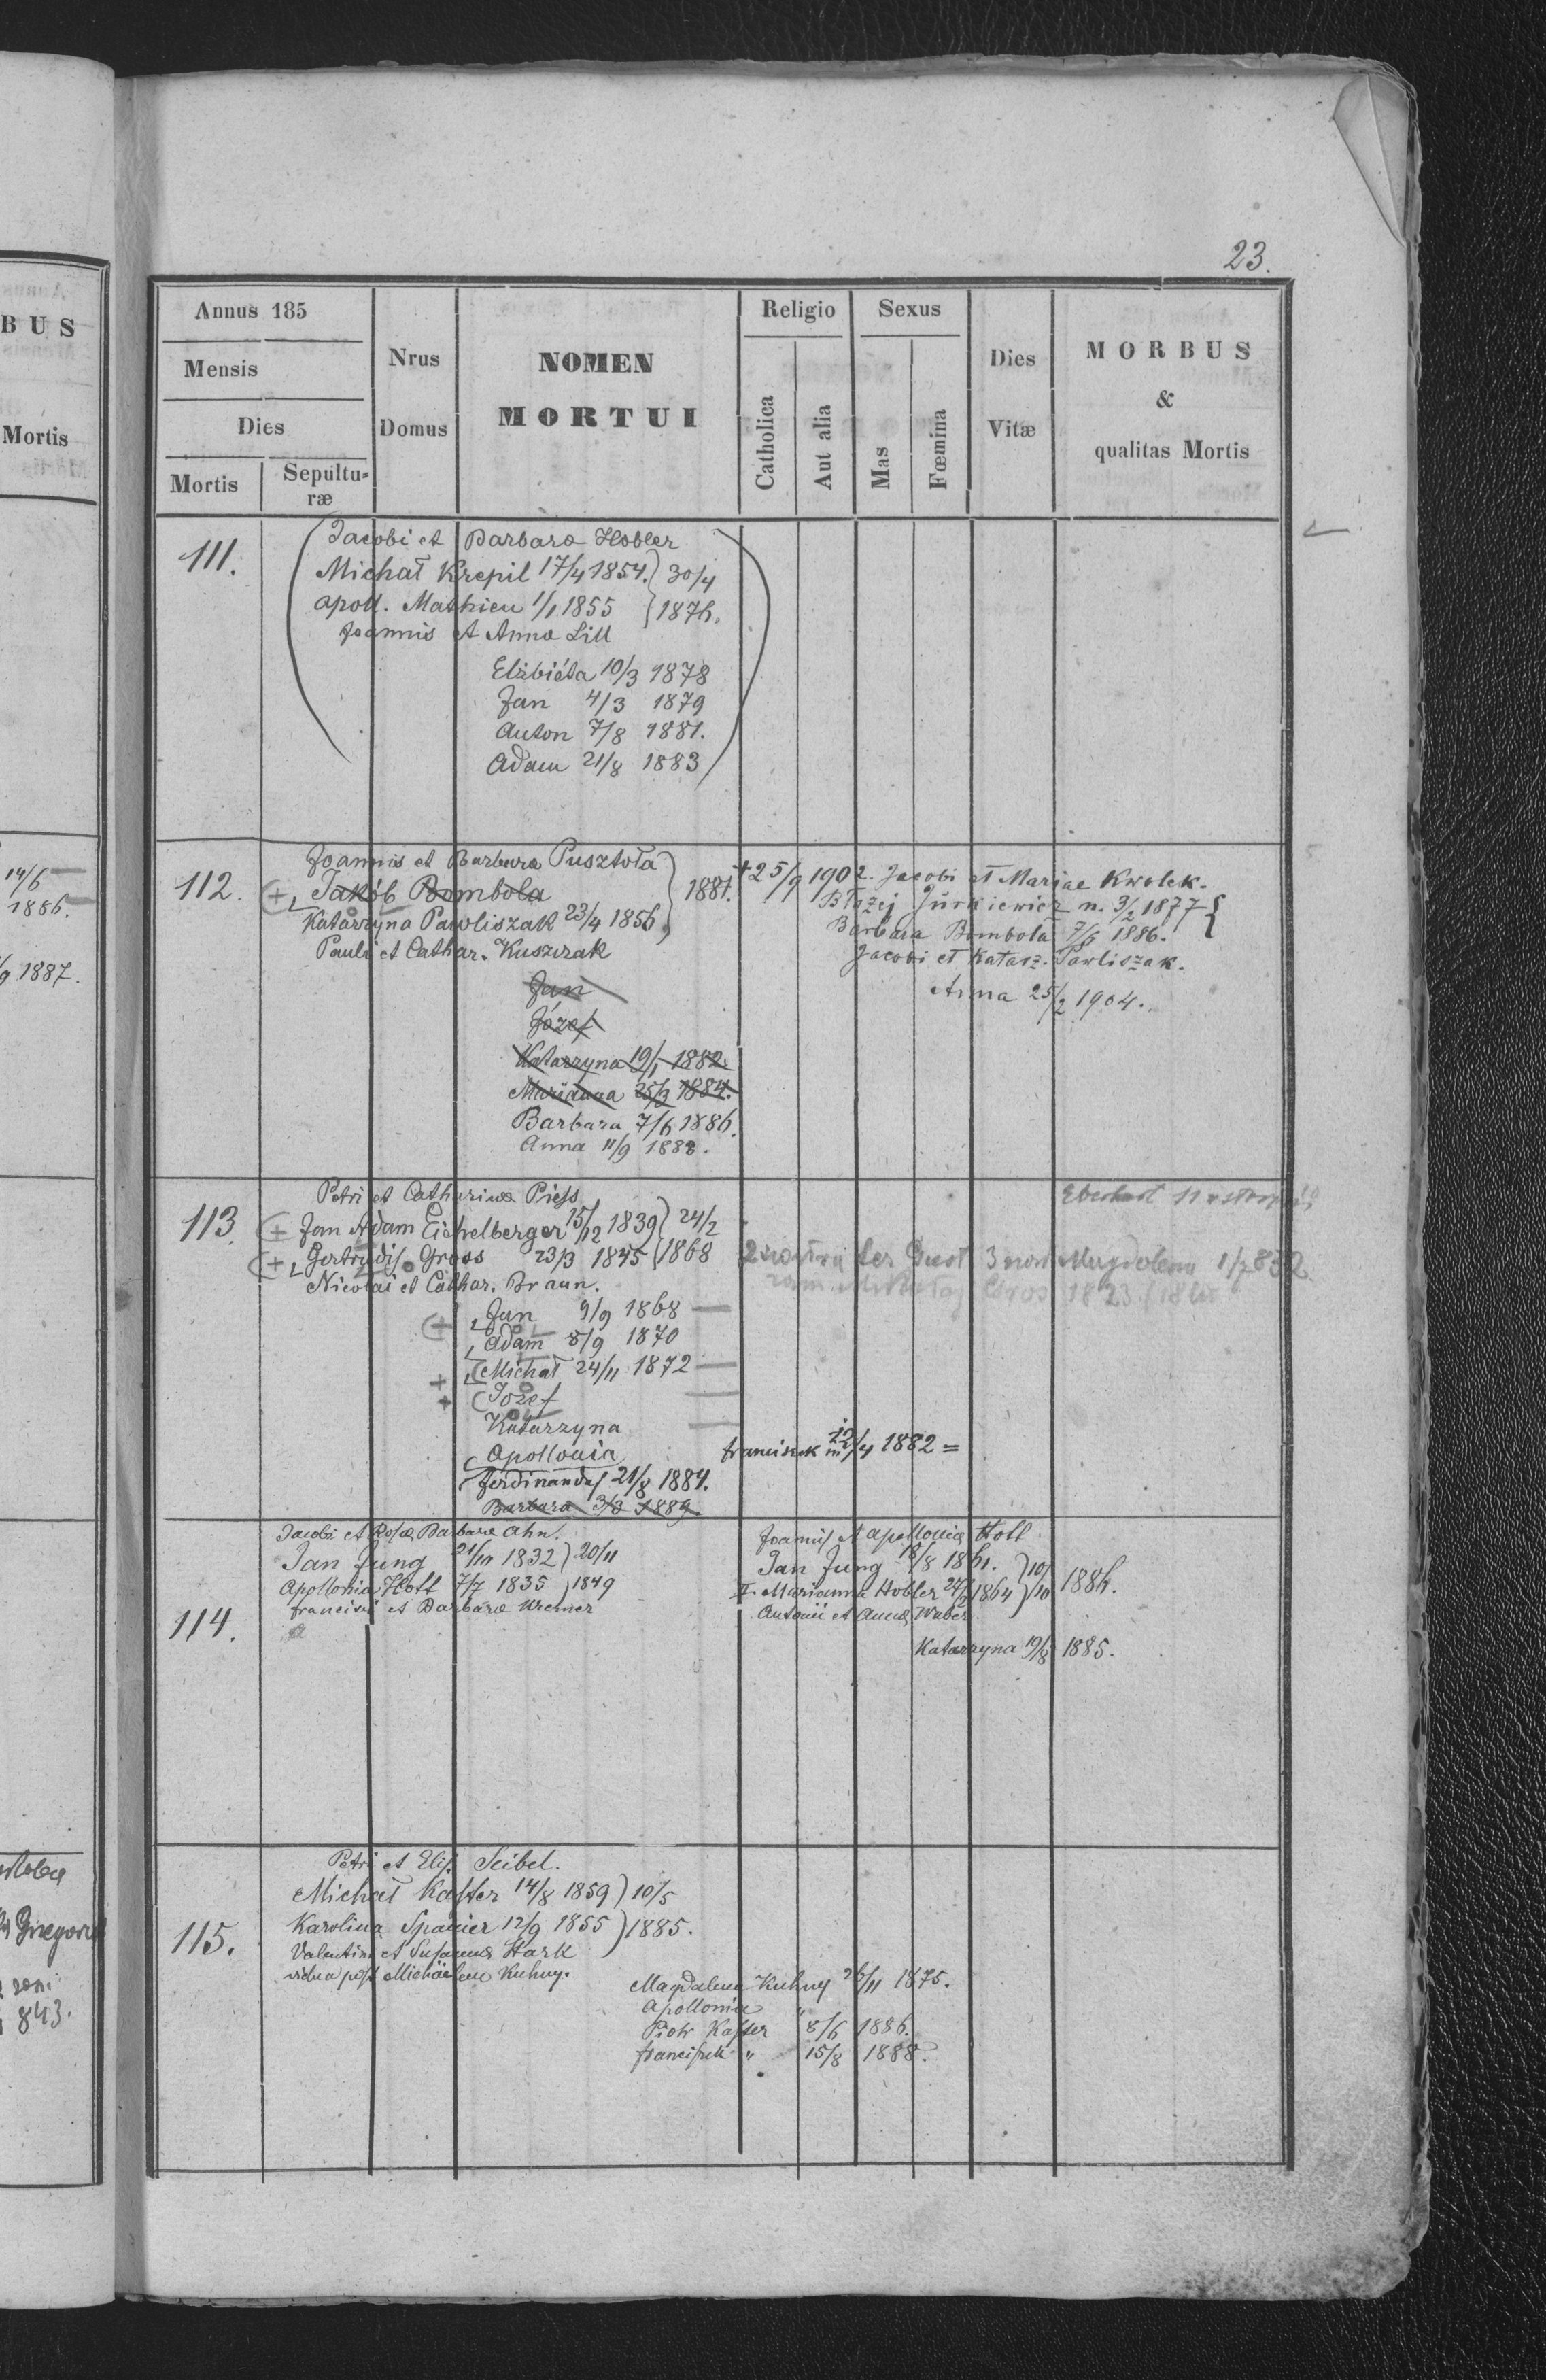 BUS
Mortis
14/6
1886.
9 1887.
Gregori
843.
23.
Annus 185
Mensis
Dies
Mortis
Sepultu-
ræ
Nrus
Domus
NOMEN
MORTUI
Religio
Catholica
Aut alia
Sexus
Mas
Fœmina
Dies
Vitæ
MORBUS
&
qualitas Mortis
111.
Jacobi et Barbara Hobler
Michał Krepil 17/4 1854. } 30/4
apoll. Mathieu 1/1 1855 } 1876.
Joannis et Anna Lill
Elżbiéta 10/3 1878
Jan 4/3 1879
Anton 7/8 1881.
Adam 21/8 1883
112.
Joannis et Barbara Pusztoła
Jakób Bombola
Katarzyna Pawliszak 23/4 1856 } 1881.
Pauli et Cathar. Kuszrak
Jan
Józef
Katarzyna 19/1 1882
Marianna 25/3 1884.
Barbara 7/6 1886.
Anna 11/9 1888.
+25/9 1902. Jacobi et Mariae Kwolek.
Błażej Jurkiewicz n. 3/2 1877 {
Barbara Bombola 7/6 1886.
Jacobi et Katarz. Pawliszak.
Anna 25/2 1904.
113.
Petri et Catharina Piess
Jan Adam Eichelberger 15/12 1839 } 24/2
Gertrudis Gross 23/3 1845 } 1868
Nicolai et Cathar. Braun.
Jan 9/9 1868 —
Adam 8/9 1870
Michał 24/11 1872 —
Józef —
Katarzyna —
Apollonia
Ferdinandus 21/8 1884.
Barbara 3/3 1889
Eberhart 11
Magdalena
Franciszek 12/4 1882 =
114.
Jacobi et Rosa, Barbara Ahn.
Jan Jung 21/10 1832 ) 20/11
Apollonia Hott 7/7 1835 ) 1849
Francisci et Barbara Kremer
Joannis et Apollonia Hott
Jan Jung 18/8 1861. ) 10/
Marianna Hobler 24/2 1864 ) 10 1886.
Antonii et Anna Waber
Katarzyna 19/8 1885.
115.
Petri et Elis. Seibel.
Michał Kaster 14/8 1859 ) 10/5
Karolina Spanier 12/9 1855 ) 1885.
Valentini et Susanna Hark
vidua post Michäelem Kuhny.
Magdalena Kuhny 26/11 1875.
Apollonia "
Piotr Kaster 8/6 1886.
Franciszek " 15/8 1888.